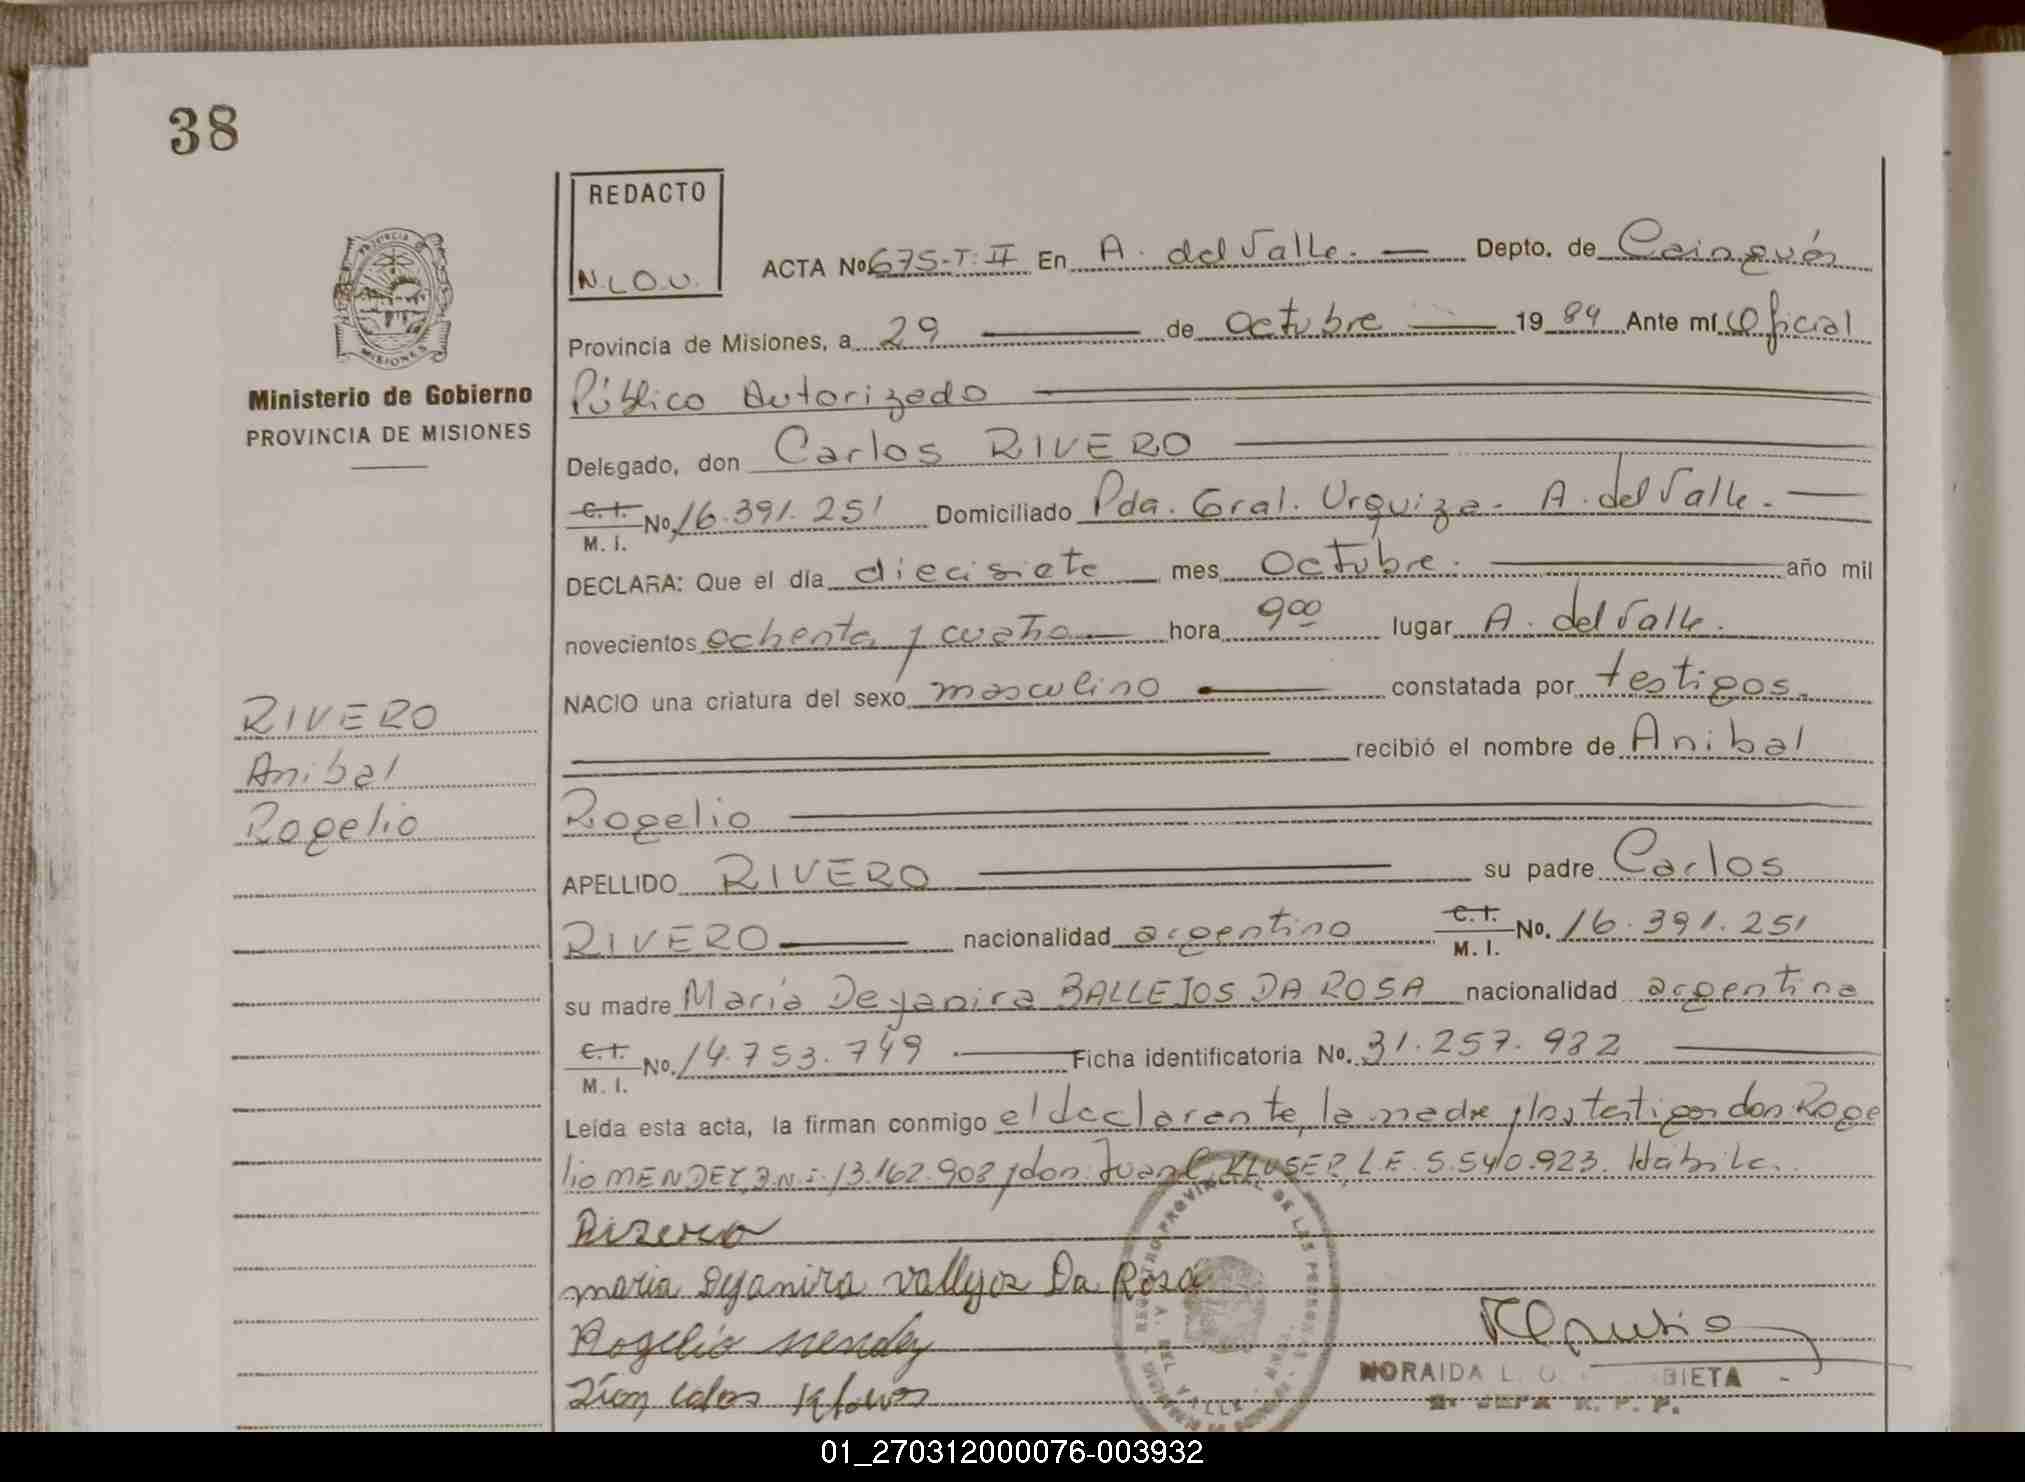 38
REDACTO
N.L.O.U.
ACTA No 675-T.II En A. del Valle. Depto. de Cainguás
Provincia de Misiones, a 29 de Octubre 1984 Ante mí Oficial
Público Autorizado
Ministerio de Gobierno
PROVINCIA DE MISIONES
Delegado, don Carlos RIVERO
C.I. M.I. No. 16.391.251 Domiciliado Pda. Gral. Urquiza. A. del Valle.
DECLARA: Que el día diecisiete mes Octubre. año mil
novecientos ochenta y cuatro hora 9 00 lugar A. del Valle.
NACIO una criatura del sexo masculino constatada por testigos.
recibió el nombre de Anibal
Rogelio
RIVERO
Anibal
Rogelio
APELLIDO RIVERO su padre Carlos
RIVERO nacionalidad argentino C.I. M.I. No. 16.391.251
su madre María Deyanira BALLEJOS DA ROSA nacionalidad argentina
C.I. M.I. No. 14.753.749 Ficha identificatoria No. 31.257.982
Leída esta acta, la firman conmigo el declarante, la madre y los testigos don Roge
lio MENDEZ, D.N.I. 13.162.902 y don Juan C. KLUSER, L.E. 5.540.923. Hábile.
Rivero
maria Deyanira vallejos Da Rosa
Rogelio mendez
NORAIDA L. O. BIETA
01_270312000076-003932